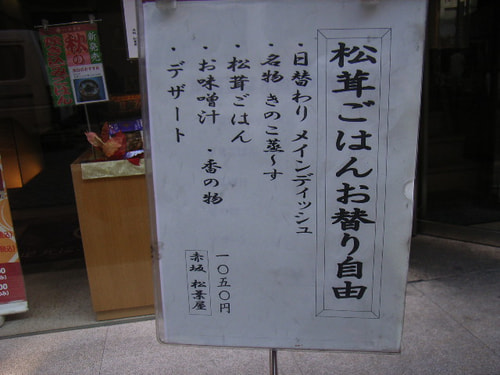 松茸ごはんお替り自由
・日替わり メインディッシュ
・名物 きのこ蒸〜す
・松茸ごはん
・お味噌汁 ・香の物
・デザート
一〇五〇円
赤坂 松葉屋
新発売
秋の